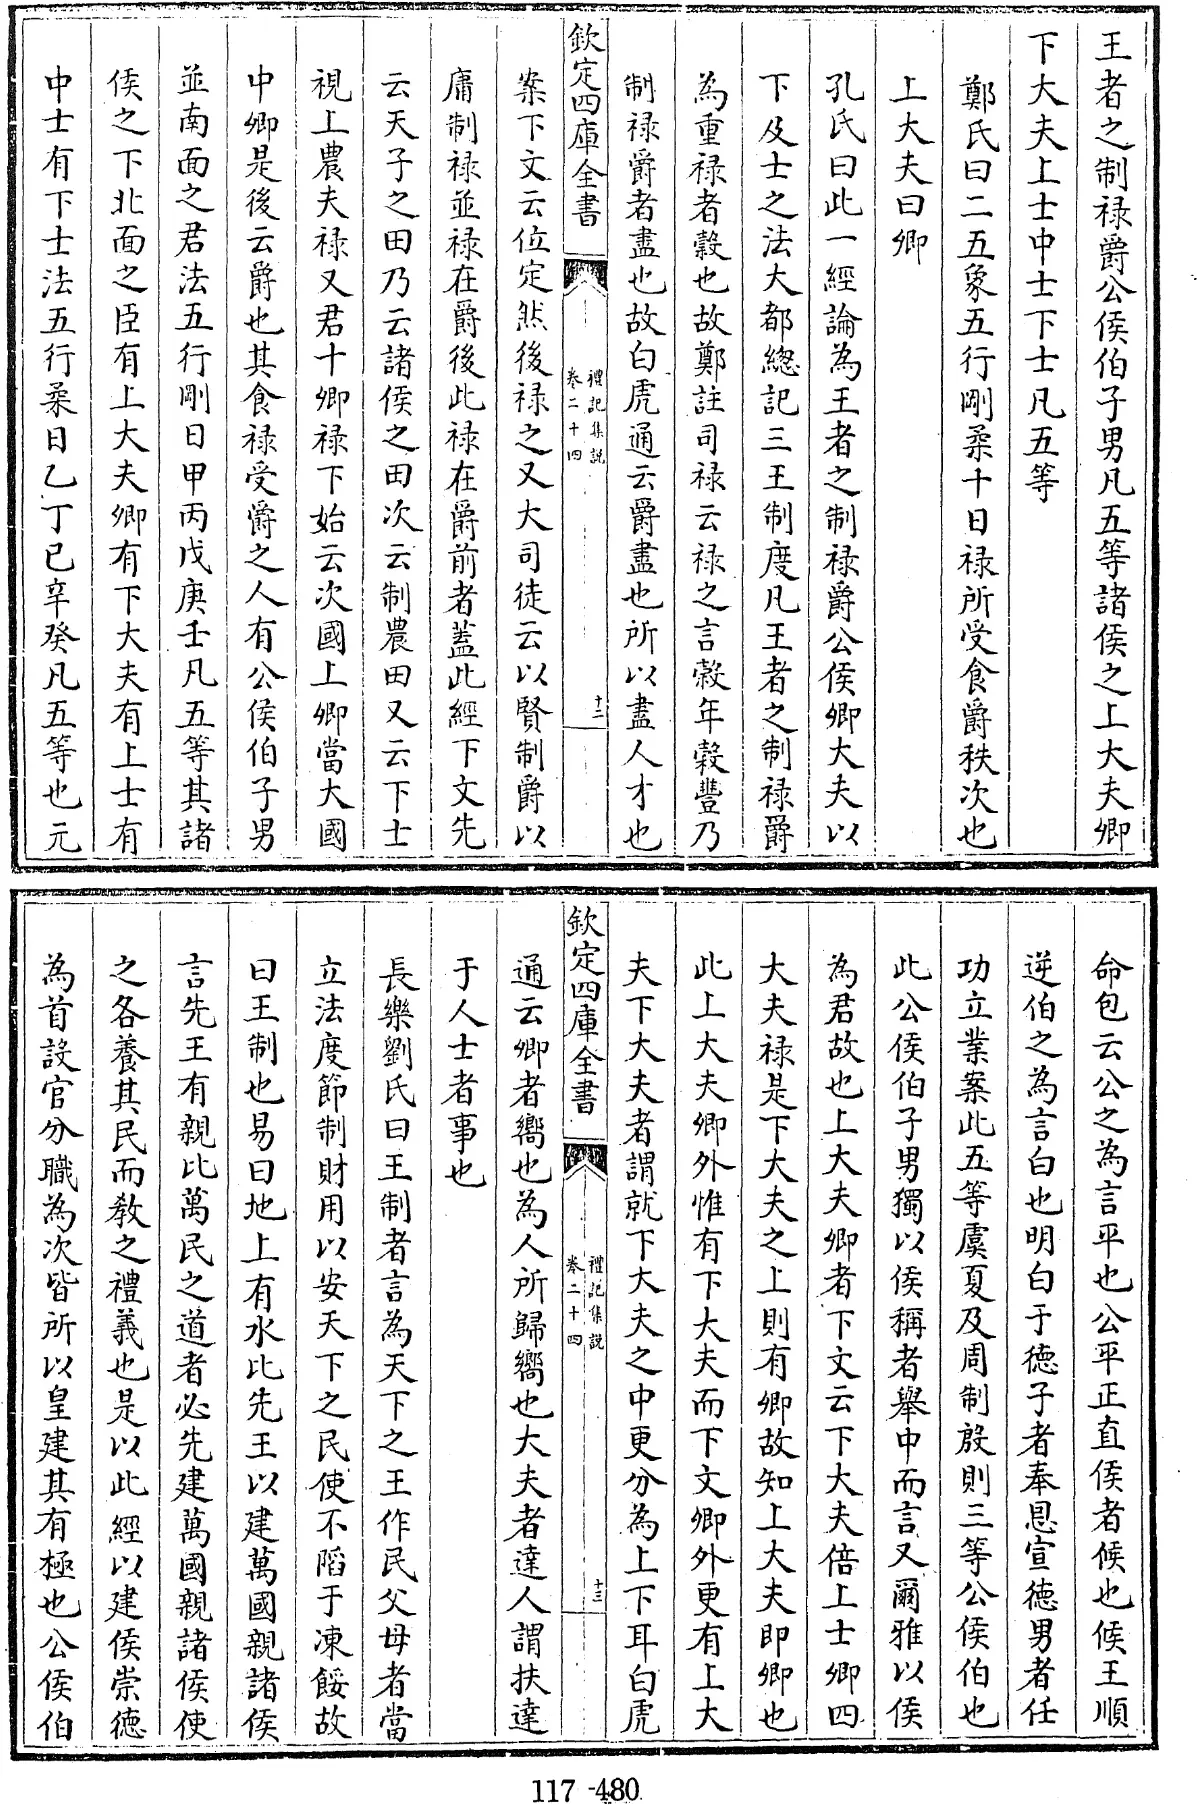 王者之制禄爵公侯伯子男凡五等諸侯之上大夫卿
下大夫上士中士下士凡五等
鄭氏曰二五象五行剛柔十日禄所受食爵秩次也
上大夫曰卿
孔氏曰此一經論為王者之制禄爵公侯卿大夫以
下及士之法大都總記三王制度凡王者之制禄爵
為重禄者穀也故鄭註司禄云禄之言穀年穀豐乃
制禄爵者盡也故白虎通云爵盡也所以盡人才也
欽定四庫全書
禮記集説
卷二十四
十二
案下文云位定然後禄之又大司徒云以賢制爵以
庸制禄並禄在爵後此禄在爵前者蓋此經下文先
云天子之田乃云諸侯之田次云制農田又云下士
視上農夫禄又君十卿禄下始云次國上卿當大國
中卿是後云爵也其食禄受爵之人有公侯伯子男
並南面之君法五行剛日甲丙戊庚壬凡五等其諸
侯之下北面之臣有上大夫卿有下大夫有上士有
中士有下士法五行柔日乙丁已辛癸凡五等也元
命包云公之為言平也公平正直侯者候也候王順
逆伯之為言白也明白于德子者奉恩宣德男者任
功立業案此五等虞夏及周制殷則三等公侯伯也
此公侯伯子男獨以侯稱者舉中而言又爾雅以侯
為君故也上大夫卿者下文云下大夫倍上士卿四
大夫禄是下大夫之上則有卿故知上大夫即卿也
此上大夫卿外惟有下大夫而下文卿外更有上大
夫下大夫者謂就下大夫之中更分為上下耳白虎
欽定四庫全書
禮記集説
卷二十四
十三
通云卿者嚮也為人所歸嚮也大夫者達人謂扶達
于人士者事也
長樂劉氏曰王制者言為天下之王作民父母者當
立法度節制財用以安天下之民使不陷于凍餒故
曰王制也易曰地上有水比先王以建萬國親諸侯
言先王有親比萬民之道者必先建萬國親諸侯使
之各養其民而教之禮義也是以此經以建侯崇德
為首設官分職為次皆所以皇建其有極也公侯伯
117-480